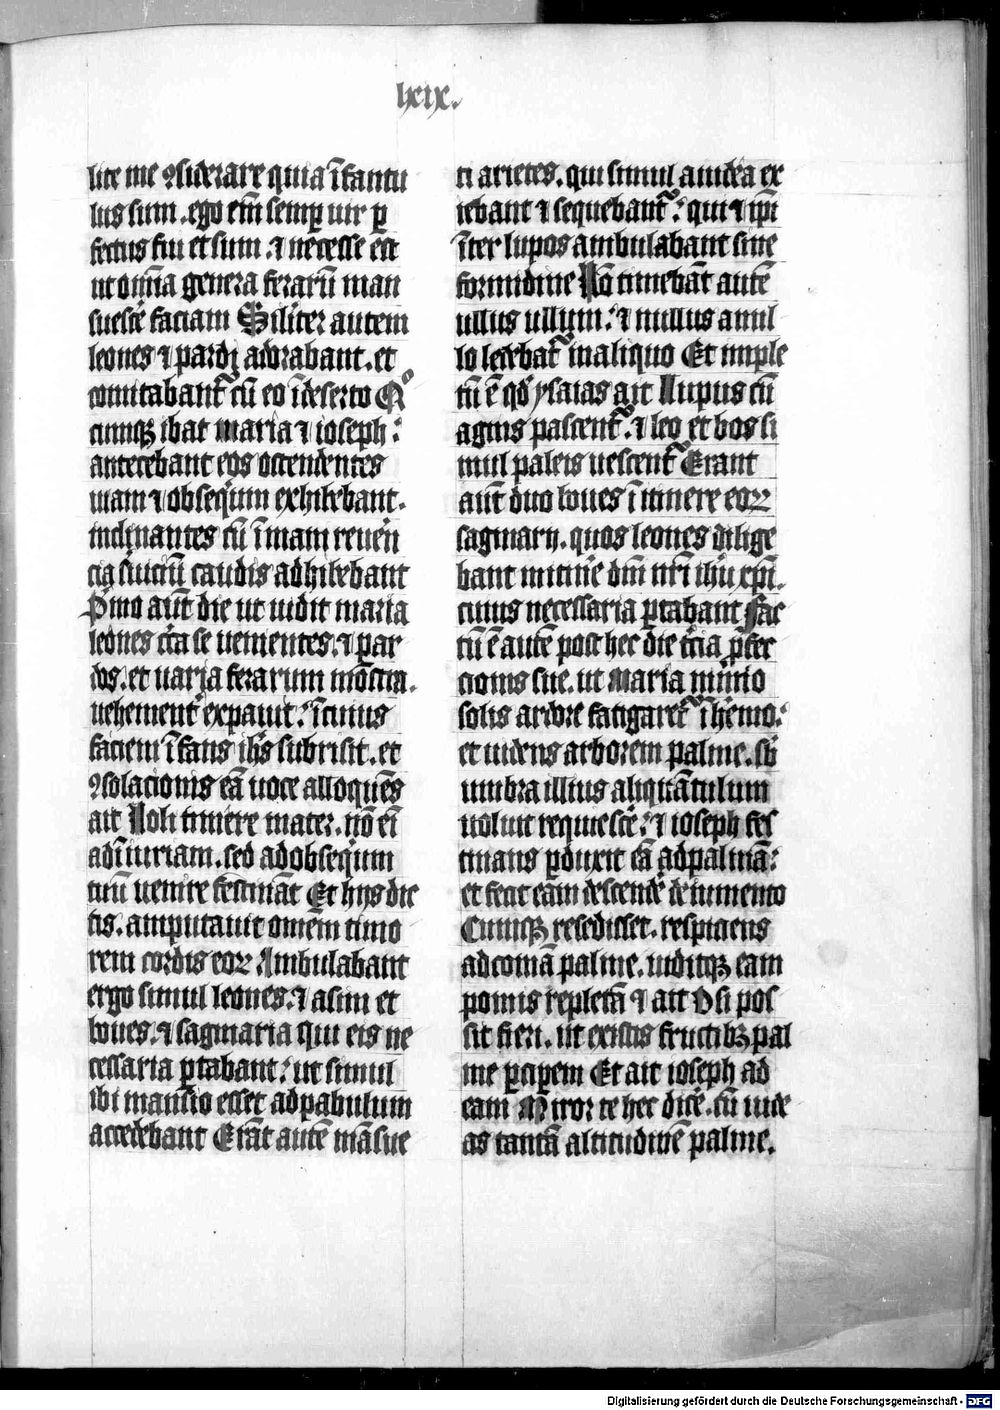 lxix.
lite me ꝯsiderare quia īfantu
lus sum. ego em̄ semꝑ uir ꝑ
fectus fui et sum. ⁊ necesse est
ut om̄a genera feraꝝ man
suescē faciam Silīter autem
leones ⁊ pardi adorabant. et
comitabant᷑ cū eo ī deserto Qͦ
cumqꝫ ibat maria ⁊ ioseph:
antecebant eos ostendentes
uiam ⁊ obseqͥum exhibebant.
inclinantes cū īmam reuerē
cia suciū caudis adhibebant
Pͥmo aūt die ut uidit maria
leones cͥca se uenientes. ⁊ par
dos. et uaria ferarum mōstra.
uehement᷑ expauit: ī cuius
faciem īfans ihs̄ subrisit. et
ꝯsolacionis eā uoce alloquēs
ait Noli timere mater. nō eī
ad īiuriam. sed ad obseqͥum
tuū uenire festināt Et hijs dic
tis. amputauit omēm timo
rem cordis eoꝝ Ambulabant
ergo simul leones. ⁊ asini et
boues. ⁊ sagmaria qui eis ne
cessaria ꝑtabant: ut simul
ibi mansio esset ad pabulum
accedebant Erāt autē māsue
ti arietes. qui simul a iudea ex
iebant ⁊ sequebant᷑: qui ⁊ ip̄i
īter lupos ambulabant sine
formidine Nō timebāt autē
ullus ullum: ⁊ nullus ab ul
lo ledebat᷑ in aliquo Et imple
tū ē qd̄ ysaias ait Lupus cū
agnis pascent᷑. ⁊ leo et bos si
mul paleis uescent᷑ Erant
aūt duo boues ī itinere eoꝝ
sagmarij. quos leones dilige
bant nutrie dm̄ nr̄i ihū xp̄i.
cuius necessaria ꝑtabant Fac
tū ē autē post hec die tͥcia ꝓfec
cionis sue. ut Maria nimio
solis ardore fatigaret᷑ ī hēmo:
et uidens arborem palme. sb̄
umbra illius aliquātulum
uoluit requiescē: ⁊ ioseph fes
tinans ꝑduxit eā ad palmā:
et fecit eam descendē de iumento
Cumqꝫ resedisset. respiciens
ad comā palme. uiditqꝫ eam
pomis repletā ⁊ ait O si pos
sit fieri. ut ex istis fructibꝫ pal
me ꝑcipem Et ait ioseph ad
eam Miror te hec dicē. cū uide
as tantā altitudinē palme.
Digitalisierung gefördert durch die Deutsche Forschungsgemeinschaft - DFG